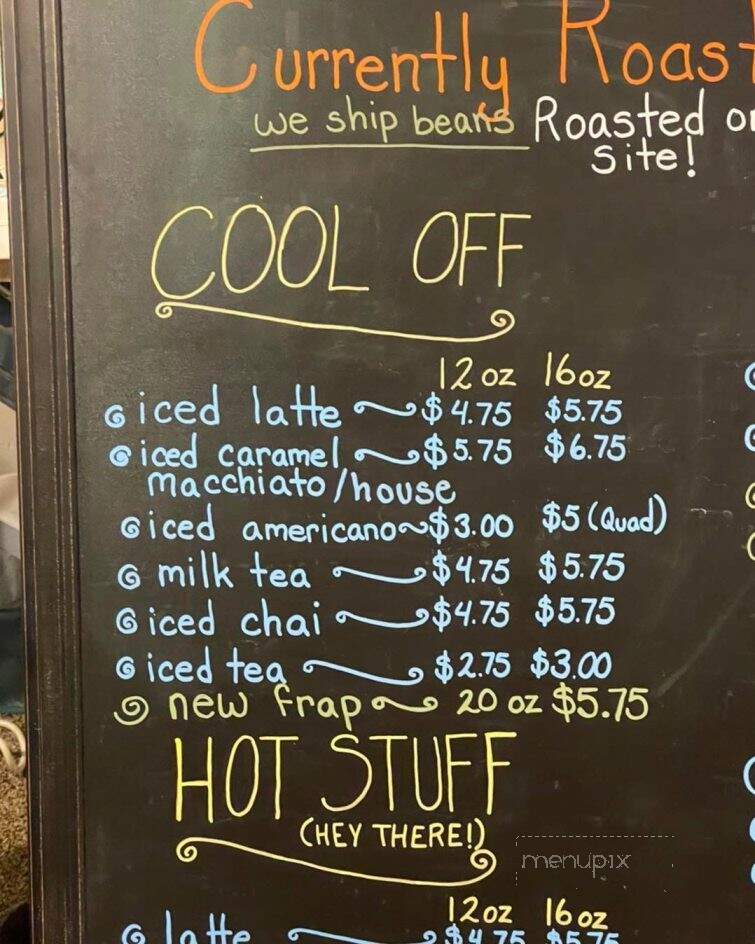 Currently Roast
we ship beans Roasted
site!
COOL OFF
12 oz 16oz
iced latte $4.75 $5.75
iced caramel $5.75 $6.75
macchiato/house
iced americano $3.00 $5 (Quad)
milk tea $4.75 $5.75
iced chai $4.75 $5.75
iced tea $2.75 $3.00
new frap 20 oz $5.75
HOT STUFF
(HEY THERE!)
menupix
12oz 16oz
latte $4.75 $5.75